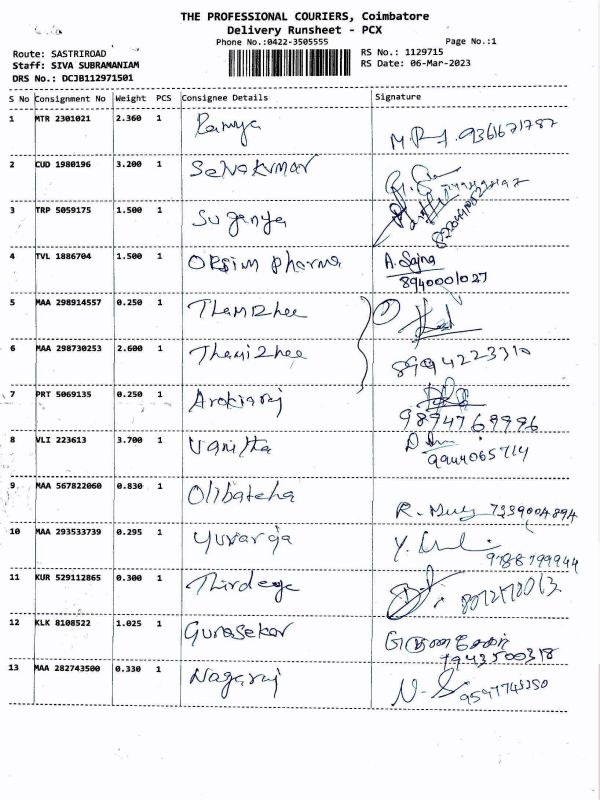 THE PROFESSIONAL COURIERS, Coimbatore
Delivery Runsheet - PCX
Phone No.:0422-3505555 Page No.:1
Route: SASTRIROAD RS No.: 1129715
Staff: SIVA SUBRAMANIAM RS Date: 06-Mar-2023
DRS No.: DCJB112971501
S No Consignment No Weight PCS Consignee Details Signature
1 MTR 2301021 2.360 1 Ramya 9361671787
2 CUD 1980196 3.200 1 Selvakumar
3 TRP 5059175 1.500 1 Suganya
4 TVL 1886704 1.500 1 Orsim Pharma A. Sajna
8940001027
5 MAA 298914557 0.250 1 Thamizhee
6 MAA 298730253 2.600 1 Thamizhee 8994223310
7 PRT 5069135 0.250 1 Arokiaraj
9894769996
8 VLI 223613 3.700 1 Vanitha
9944065714
9 MAA 567822060 0.830 1 Olibatcha
7339004894
10 MAA 293533739 0.295 1 Yuvaraja
9788799944
11 KUR 529112865 0.300 1
12 KLK 8108522 1.025 1 Gunasekar குணசேகர்
7943500318
13 MAA 282743500 0.330 1 Nagaraj N. S